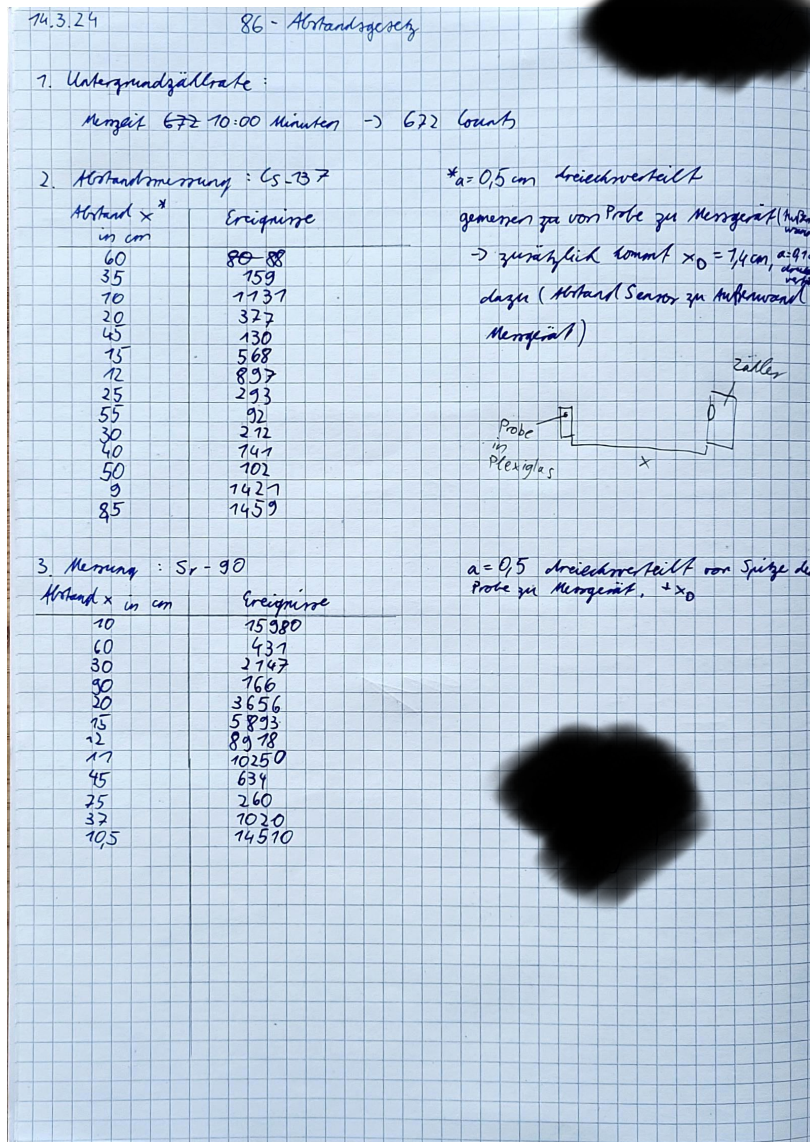 14.3.24
86 - Abstandsgesetz
1. Untergrundzählrate :
Messzeit 672 10:00 Minuten -> 672 Counts
2. Abstandsmessung : Cs-137
Abstand x*
in cm
Ereignisse
60 80 88
35 159
10 1131
20 377
45 130
15 568
12 897
25 293
55 92
30 212
40 141
50 102
9 1421
8,5 1459
*a = 0,5 cm dreiecksverteilt
gemessen von Probe zu Messgerät (
-> zusätzlich kommt x0 = 1,4 cm,
dazu (Abstand Sensor zu Außenwand
Messgerät)
Zähler
Probe
in
Plexiglas
x
3. Messung : Sr-90
Abstand x in cm Ereignisse
10 15980
60 431
30 2147
90 166
20 3656
15 5893
12 8918
11 10250
45 634
75 260
37 1020
10,5 14510
a = 0,5 dreiecksverteilt von Spitze
Probe zu Messgerät, + x0